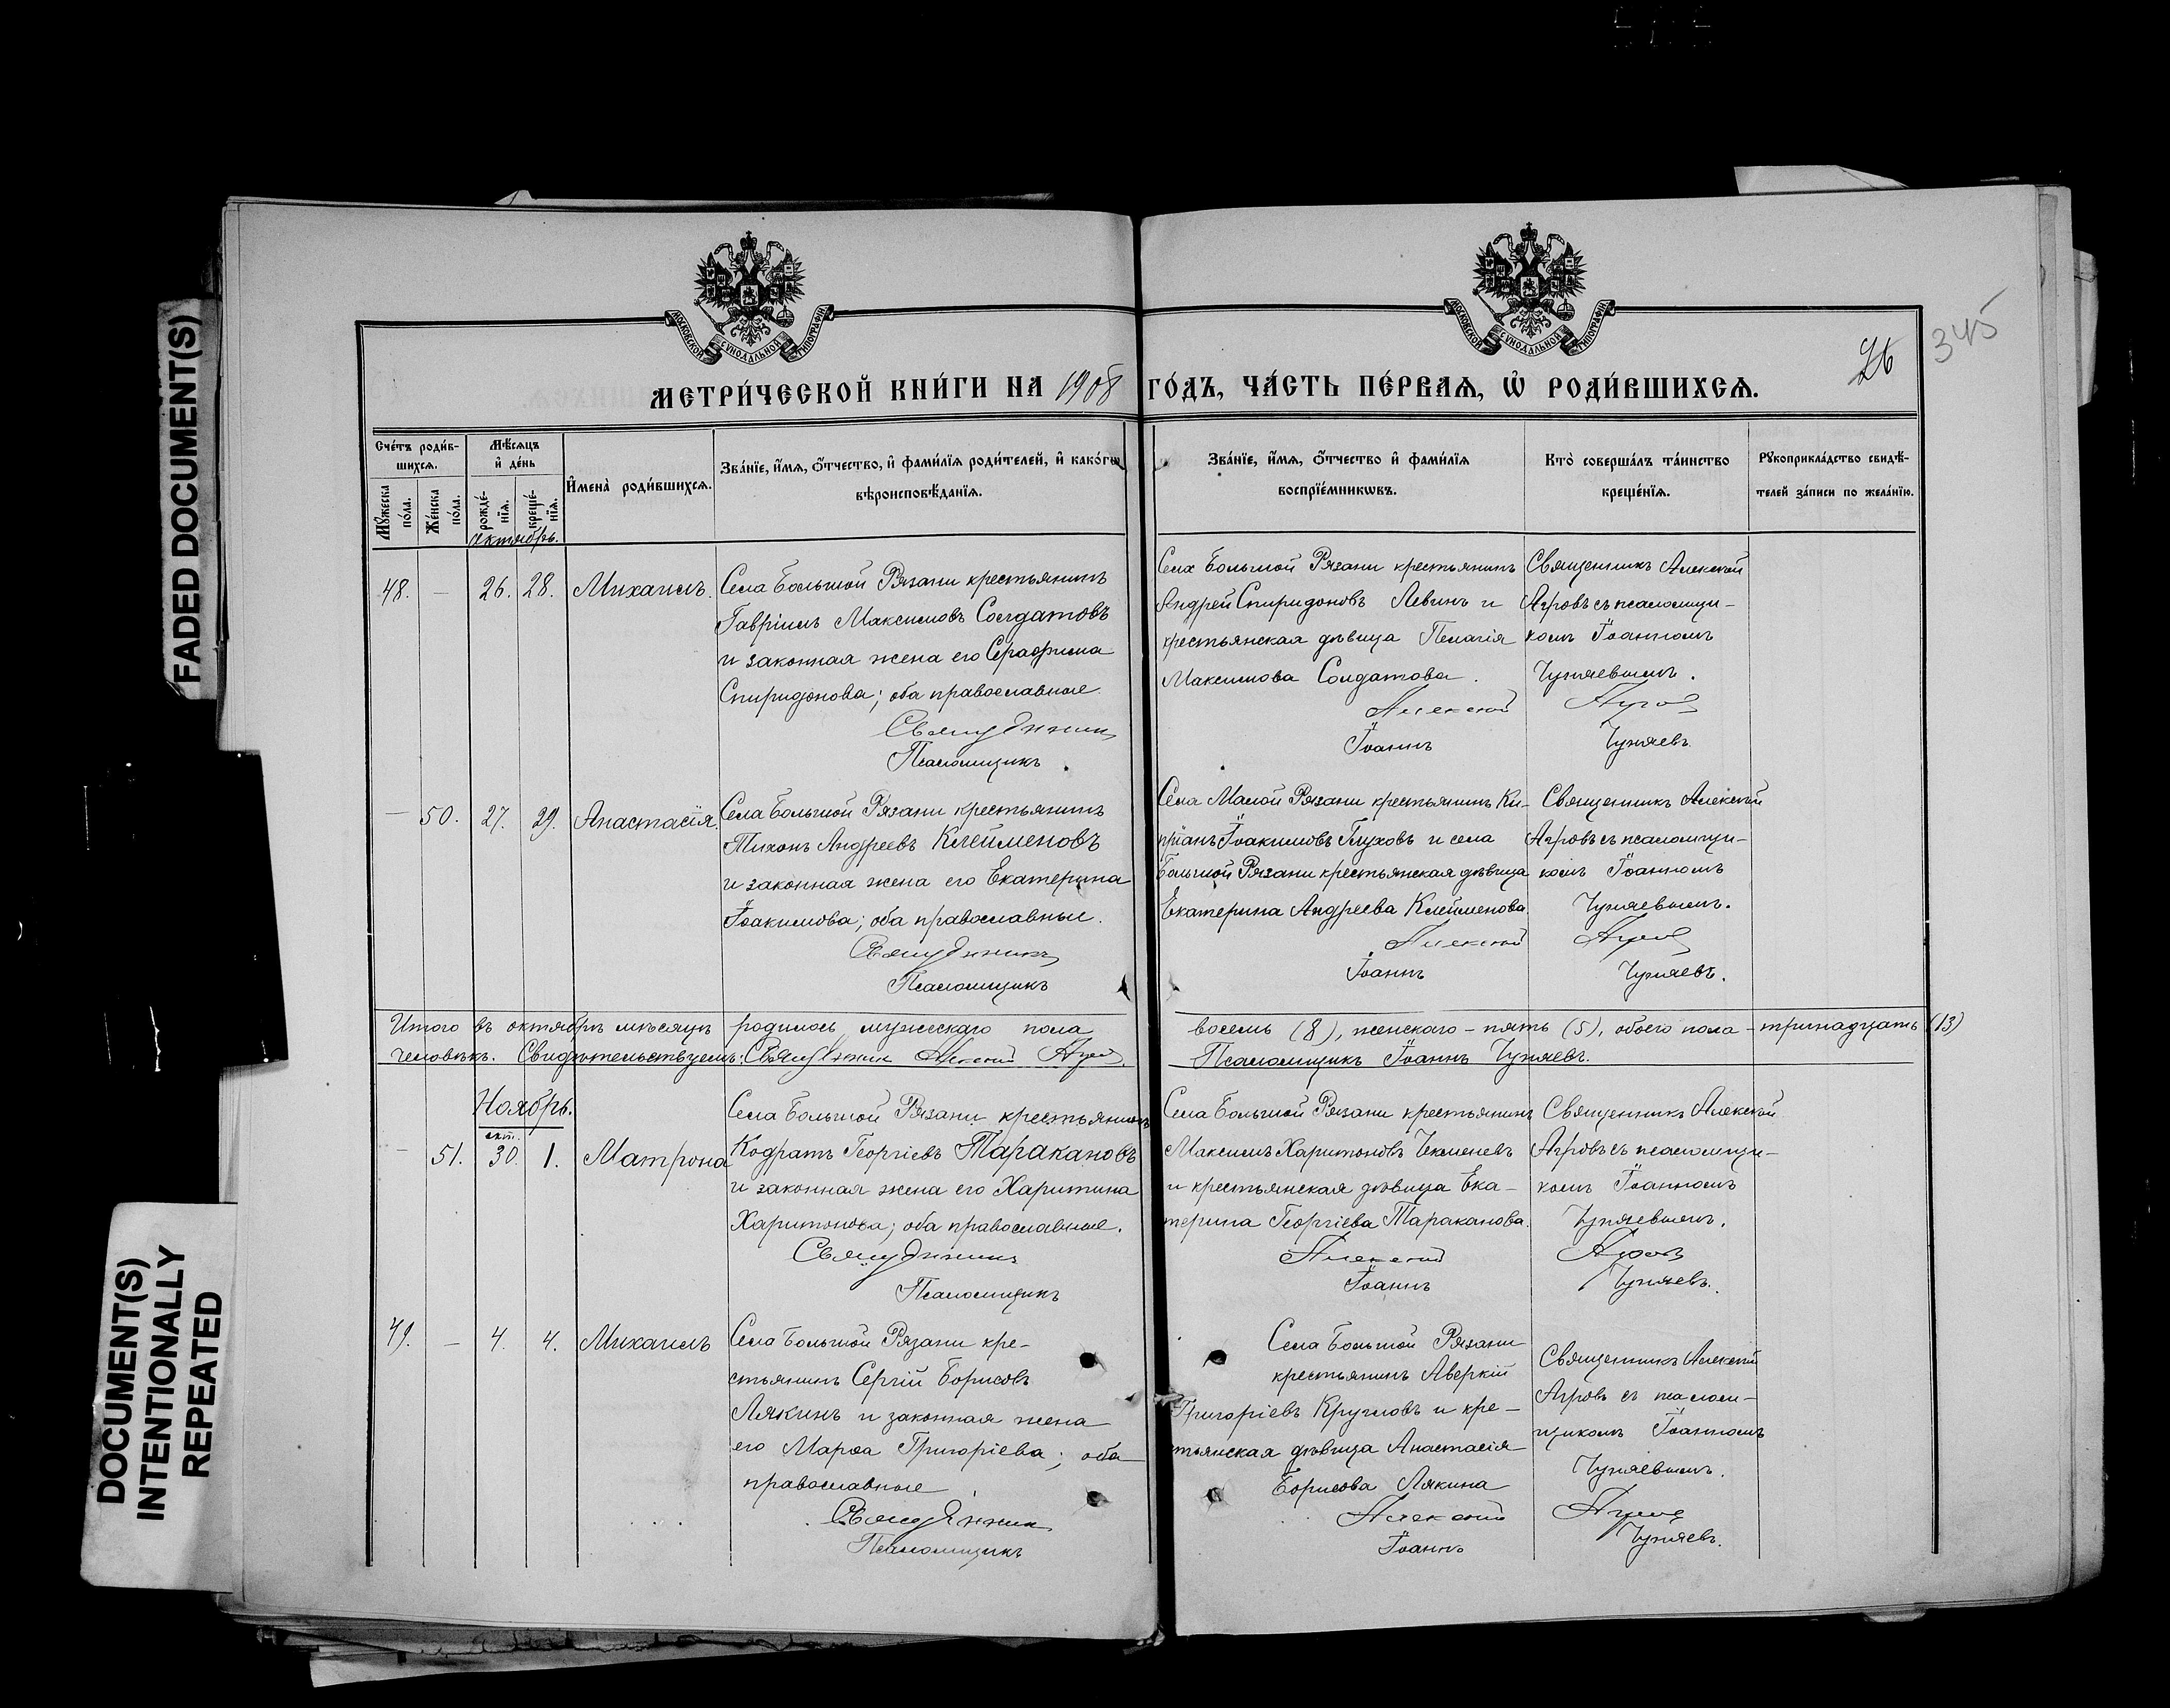 FADED DOCUMENT(S)
DOCUMENT(S)
INTENTIONALLY
REPEATED
МОСКОВСКОЙ СѴНОДАЛЬНОЙ ТИПОГРАФІИ
МОСКОВСКОЙ СѴНОДАЛЬНОЙ ТИПОГРАФІИ
26
345
МЕТРИ́ЧЕСКОЙ КНИ́ГИ НА 1908 ГО́ДЪ, ЧА́СТЬ ПЕ́РВАѦ, Ѡ҆ РОДИ́ВШИХСѦ.
Сче́тъ роди́в-
шихсѧ.
Мꙋ́жеска
по́ла.
Же́нска
по́ла.
Мѣ́сѧцъ
и҆ де́нь
рожде́-
нїѧ.
креще́-
нїѧ.
И҆мена̀ роди́вшихсѧ.
Зва́нїе, и҆́мѧ, ѻ҆́тчество, и҆ фами́лїѧ роди́телей, и҆ како́гѡ
вѣроисповѣ́данїѧ.
Зва́нїе, и҆́мѧ, ѻ҆́тчество и҆ фами́лїѧ
воспрїе́мникѡвъ.
Кто̀ соверша́лъ та́инство
креще́нїѧ.
Рꙋкоприкла́дство свидѣ́-
телей за́писи по жела́нїю.
Октябрь.
48. — 26. 28. Михаилъ.
Села Большой Рязани крестьянинъ
Гавріилъ Максимовъ Солдатовъ
и законная жена его Серафима
Спиридонова; оба православные.
Священникъ
Псаломщикъ
Села Большой Рязани крестьянинъ
Андрей Спиридоновъ Левинъ и
крестьянская дѣвица Пелагія
Максимова Солдатова.
Алексей
Іоаннъ
Священникъ Алексей
Агровъ съ псаломщи-
комъ Іоанномъ
Чуняевымъ.
Агровъ
Чуняевъ.
— 50. 27. 29. Анастасія.
Села Большой Рязани крестьянинъ
Тихонъ Андреевъ Клейменовъ
и законная жена его Екатерина
Іоакимова; оба православные.
Священникъ
Псаломщикъ
Села Малой Рязани крестьянинъ Ки-
пріанъ Іоакимовъ Глуховъ и села
Большой Рязани крестьянская дѣвица
Екатерина Андреева Клейменова.
Алексей
Іоаннъ
Священникъ Алексей
Агровъ съ псаломщи-
комъ Іоанномъ
Чуняевымъ.
Агровъ
Чуняевъ.
Итого въ октябрѣ мѣсяцѣ родилось мужескаго пола восемь (8), женскаго - пять (5), обоего пола - тринадцать (13)
человѣкъ. Свидѣтельствуемъ: Священникъ Алексей Агровъ. Псаломщикъ Іоаннъ Чуняевъ.
Ноябрь.
окт.
— 51. 30. 1. Матрона
Села Большой Рязани крестьянинъ
Кодратъ Георгіевъ Таракановъ
и законная жена его Харитина
Харитонова; оба православные.
Священникъ
Псаломщикъ
Села Большой Рязани крестьянинъ
Максимъ Харитоновъ Чекменевъ
и крестьянская дѣвица Ека-
терина Георгіева Тараканова.
Алексей
Іоаннъ
Священникъ Алексей
Агровъ съ псаломщи-
комъ Іоанномъ
Чуняевымъ.
Агровъ
Чуняевъ.
49. — 4. 4. Михаилъ
Села Большой Рязани кре-
стьянинъ Сергій Борисовъ
Лякинъ и законная жена
его Марѳа Григоріева; оба
православные
Священникъ
Псаломщикъ
Села Большой Рязани
крестьянинъ Аверкій
Григоріевъ Кругловъ и кре-
стьянская дѣвица Анастасія
Борисова Лякина
Алексей
Іоаннъ
Священникъ Алексей
Агровъ съ псалом-
щикомъ Іоанномъ
Чуняевымъ.
Агровъ
Чуняевъ.